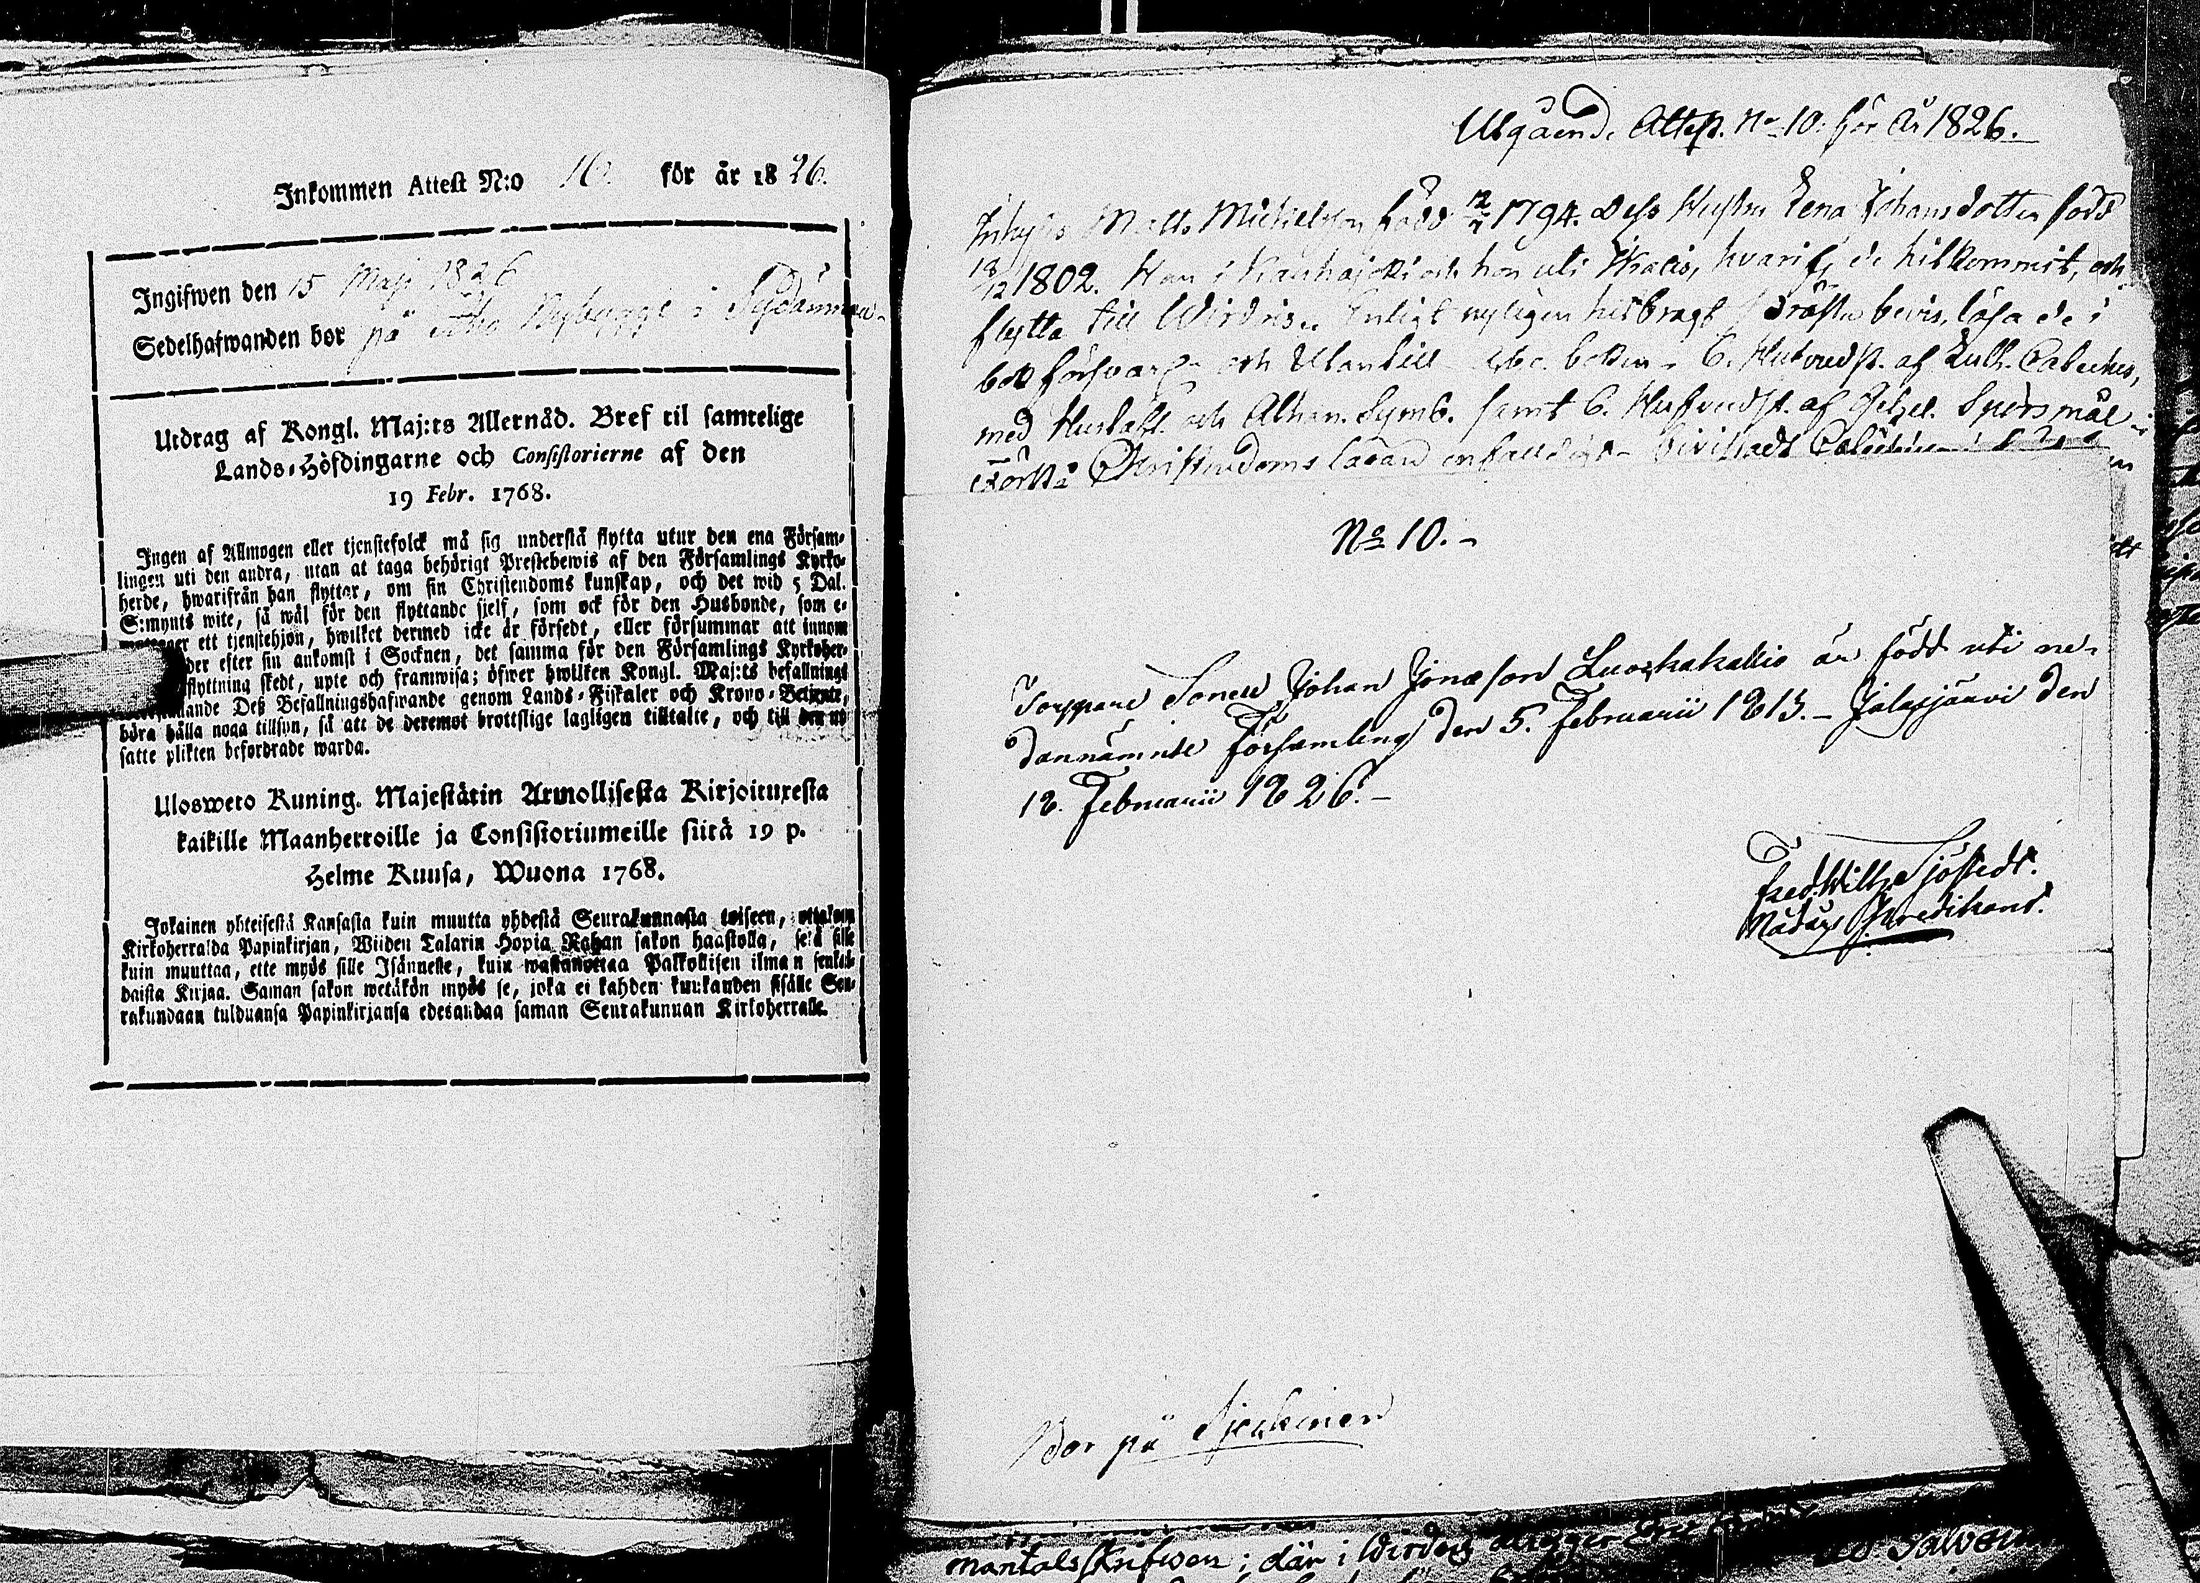 Inkommen Attest N:o 10. för år 1826.
Ingifwen den 15 Maji 1826
Sedelhafwanden bor på Nybygge i Sydänmaa
Utdrag af Kongl. Maj:ts Allernåd. Bref til samtelige
Lands-Höfdingarne och Consistorierne af den
19 Febr. 1768.
Ingen af Allmogen eller tjenstefolck må sig understå flytta utur den ena Försam-
lingen uti den andra, utan at taga behörigt Prestebewis af den Församlings Kyrko-
herde, hwarifrån han flyttar, om sin Christendoms kunskap, och det wid 5 Dal.
S:mynts wite, så wäl för den flyttande sjelf, som ock för den Husbonde, som e-
ett tjenstehjon, hwilket dermed icke är försedt, eller försummar att innom
efter sin ankomst i Socknen, det samma för den Församlings Kyrkoher-
flyttning skedt, upte och framwisa; öfwer hwilken Kongl. Maj:ts befallnings
Deß Befallningshafwande genom Lands-Fiskaler och Krono-Betjente,
böra hålla noga tillsyn, så att de deremot brottslige lagligen tilltalte, och till den ut
satte plikten befordrade warda.
Ulosweto Kuning. Majestätin Armollisesta Kirjoituxesta
kaikille Maanherroille ja Consistoriumeille siitä 19 p.
Helme Kuusa, Wuona 1768.
Jokainen yhteisestä Kansasta kuin muutta yhdestä Seurakunnasta toiseen, ottakoon
Kirkoherralda Papinkirjan, Wiiden Talarin Hopia Rahan sakon haastolla, sekä sille
kuin muuttaa, ette myös sille Isännelle, kuin wastanottaa Palkollisen ilman senkal-
daista Kirjaa. Saman sakon wetäkön myös se, joka ei kahden kuukauden sisälle Seu-
rakundaan tulduansa Papinkirjansa edesandaa saman Seurakunnan Kirkoherralle.
Utgående Attest. No 10. för År 1826.
Inhyses Matts Michelsson född 12/ 1794. Dess Hustru Lena Johansdotter född
18/12 1802. Han i Kauhajoki och hon uti hvarifr. de hitkommit, och
flytta till Wirdois. Enligt nyligen hitbragt bevis, läsa de i
bok försvarl. och Utantill Abc. boken, 6. Hufvudst. af Luth. Cateches,
med Hustafl. och Athan. Symb. samt 6. Hufvudst. af Spörsmål
Christendoms läran
No 10.-
Torppare Sonen Johan Jonæson Luoskakallio är född uti ne-
dannämnte Församling den 5. Februarii 1813.- Jalasjärvi den
18. Februarii 1826.-
Fred. Wilh. Sjöstedt.
Nådårs Predikant.
Bor på
mantalsskrifwen; där i Wirdois